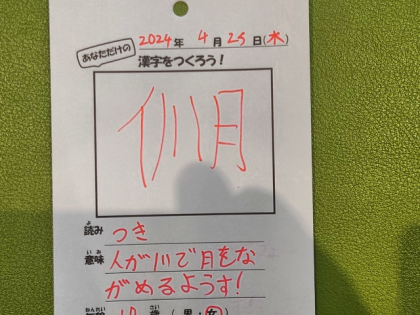 2024年 4月25日(木)
あなただけの
漢字をつくろう!
イ川月
読み つき
意味 人が川で月をな
がめるようす!
歳 (男・女)